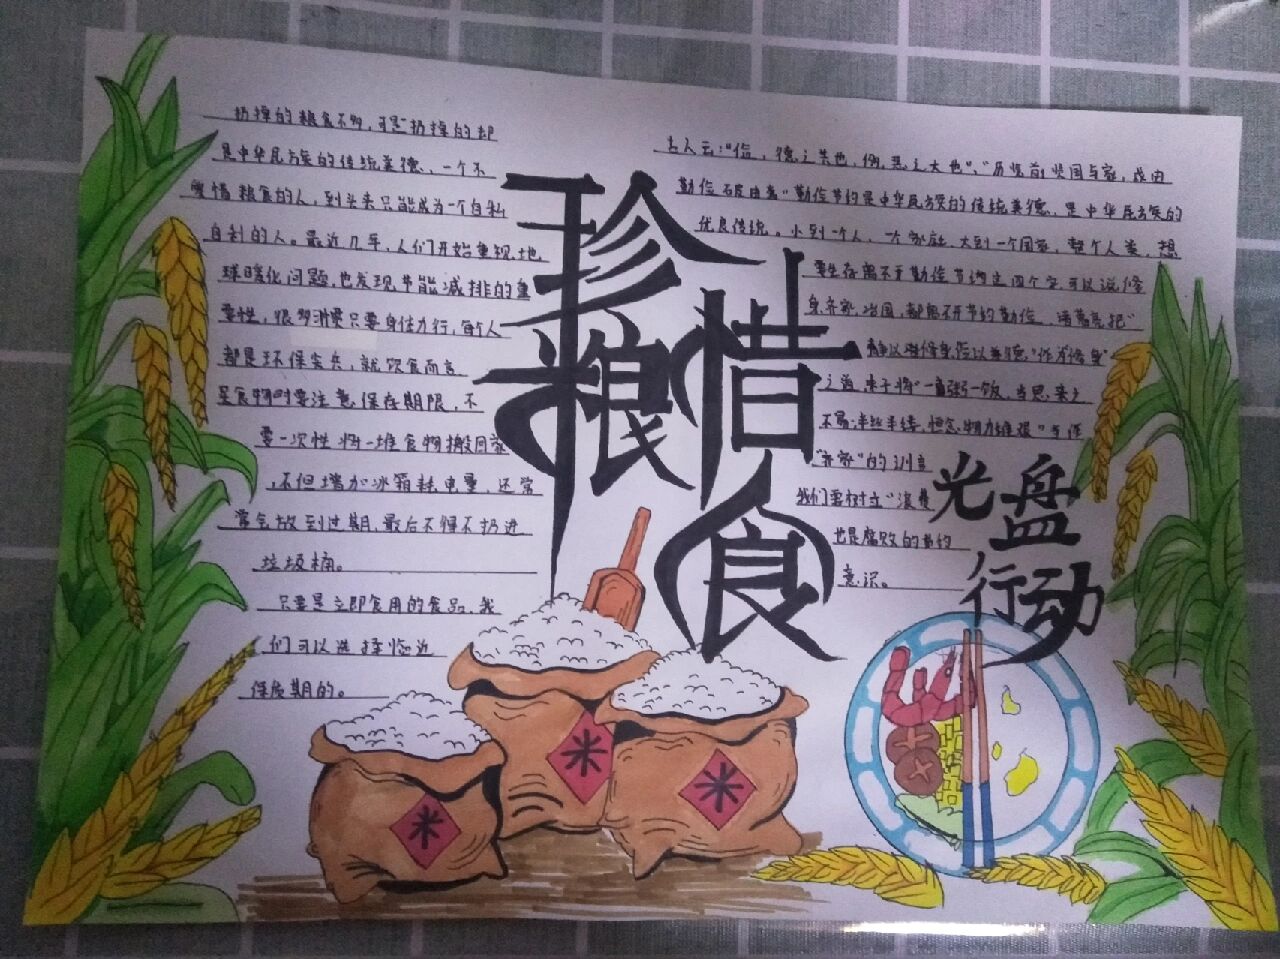 扔掉的粮食不多，可是扔掉的却
是中华民族的传统美德，一个不
爱惜粮食的人，到头来只能成为一个自私
自利的人。最近几年，人们开始重视地
球暖化问题，也发现节能减排的重
要性，很多消费只要身体力行，每个人
都是环保尖兵，就饮食而言
买食物时要注意保存期限，不
要一次性将一堆食物搬回家
，不但增加冰箱耗电量，还常
常会放到过期，最后不得不扔进
垃圾桶。
只要是立即食用的食品，我
们可以选择临近
保质期的。
珍惜
粮食
古人云："俭，德之共也，侈，恶之大也"、"历览前贤国与家，成由
勤俭破由奢"勤俭节约是中华民族的传统美德，是中华民族的
优良传统。小到一个人、一个家庭，大到一个国家，整个人类，想
要生存离不开勤俭节约这四个字可以说修
身齐家治国，都离不开节约勤俭，诸葛亮把"
静以修身俭以养德"作为修身
之道，朱子将"一粥一饭，当思来之
不易；半丝半缕，恒念物力维艰"当作
"齐家"的训言
我们要树立"浪费
也是腐败的节约
意识。
光盘
行动
米
米
米